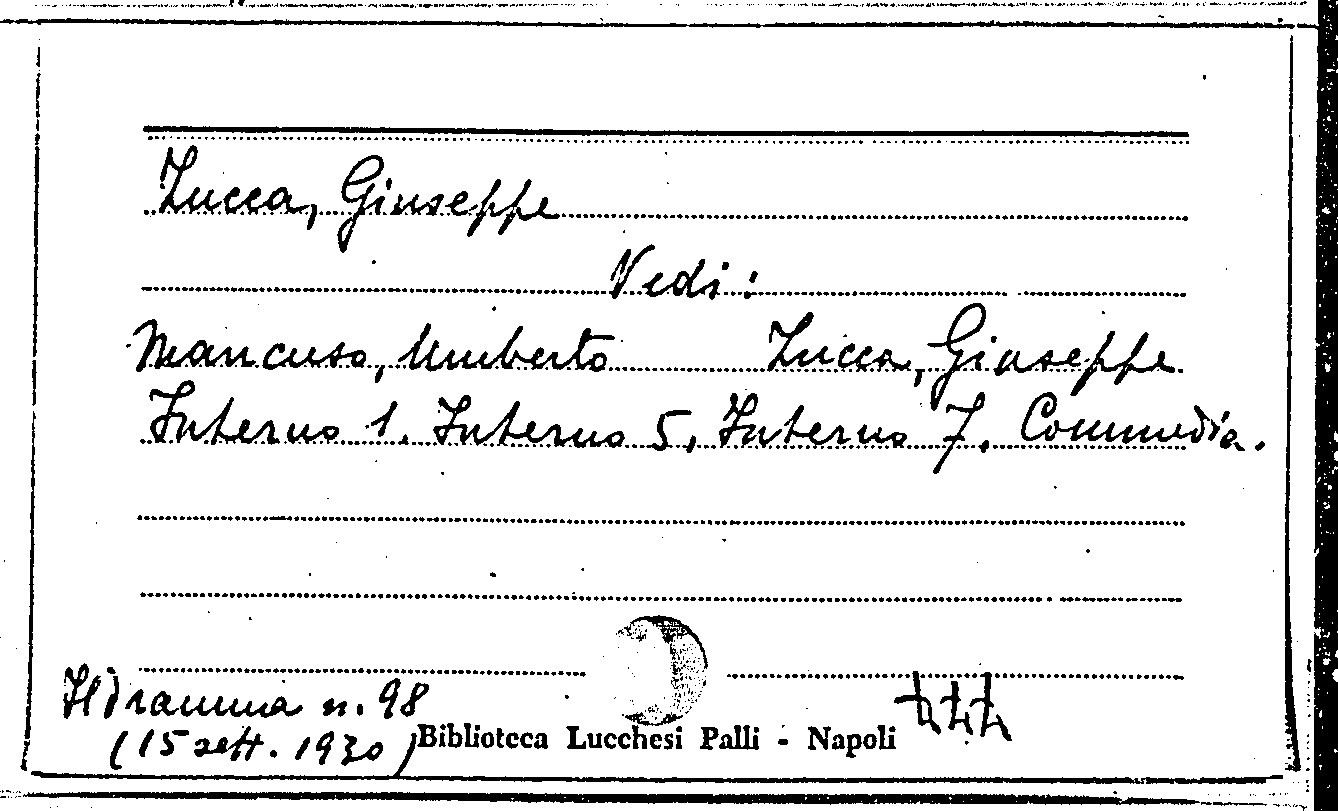 Zucca, Giuseppe
Vedi:
Mancuso, Umberto Zucca, Giuseppe
Interno 1. Interno 5, Interno 7. Commedia.
Il Dramma n. 98
(15 sett. 1930)
Biblioteca Lucchesi Palli - Napoli